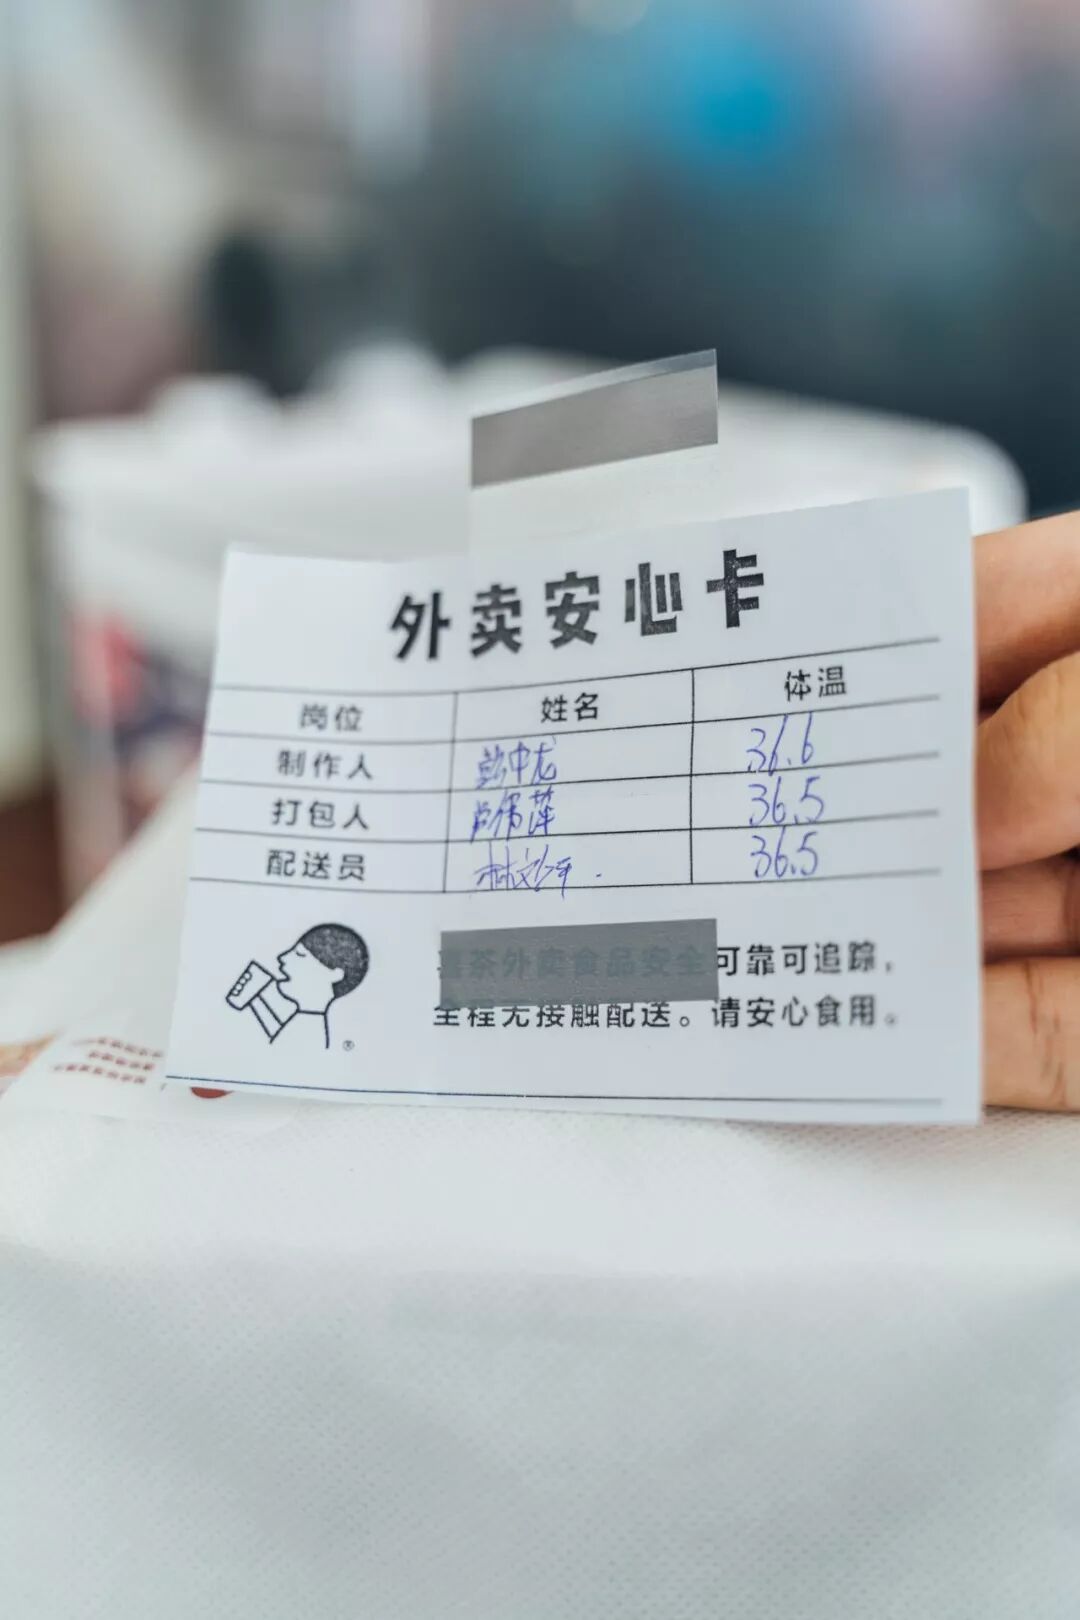 外卖安心卡
岗位 姓名 体温
制作人 彭中龙 36.6
打包人 卢伟萍 36.5
配送员 林文 36.5
喜茶外卖食品安全可靠可追踪，
全程无接触配送。请安心食用。
®